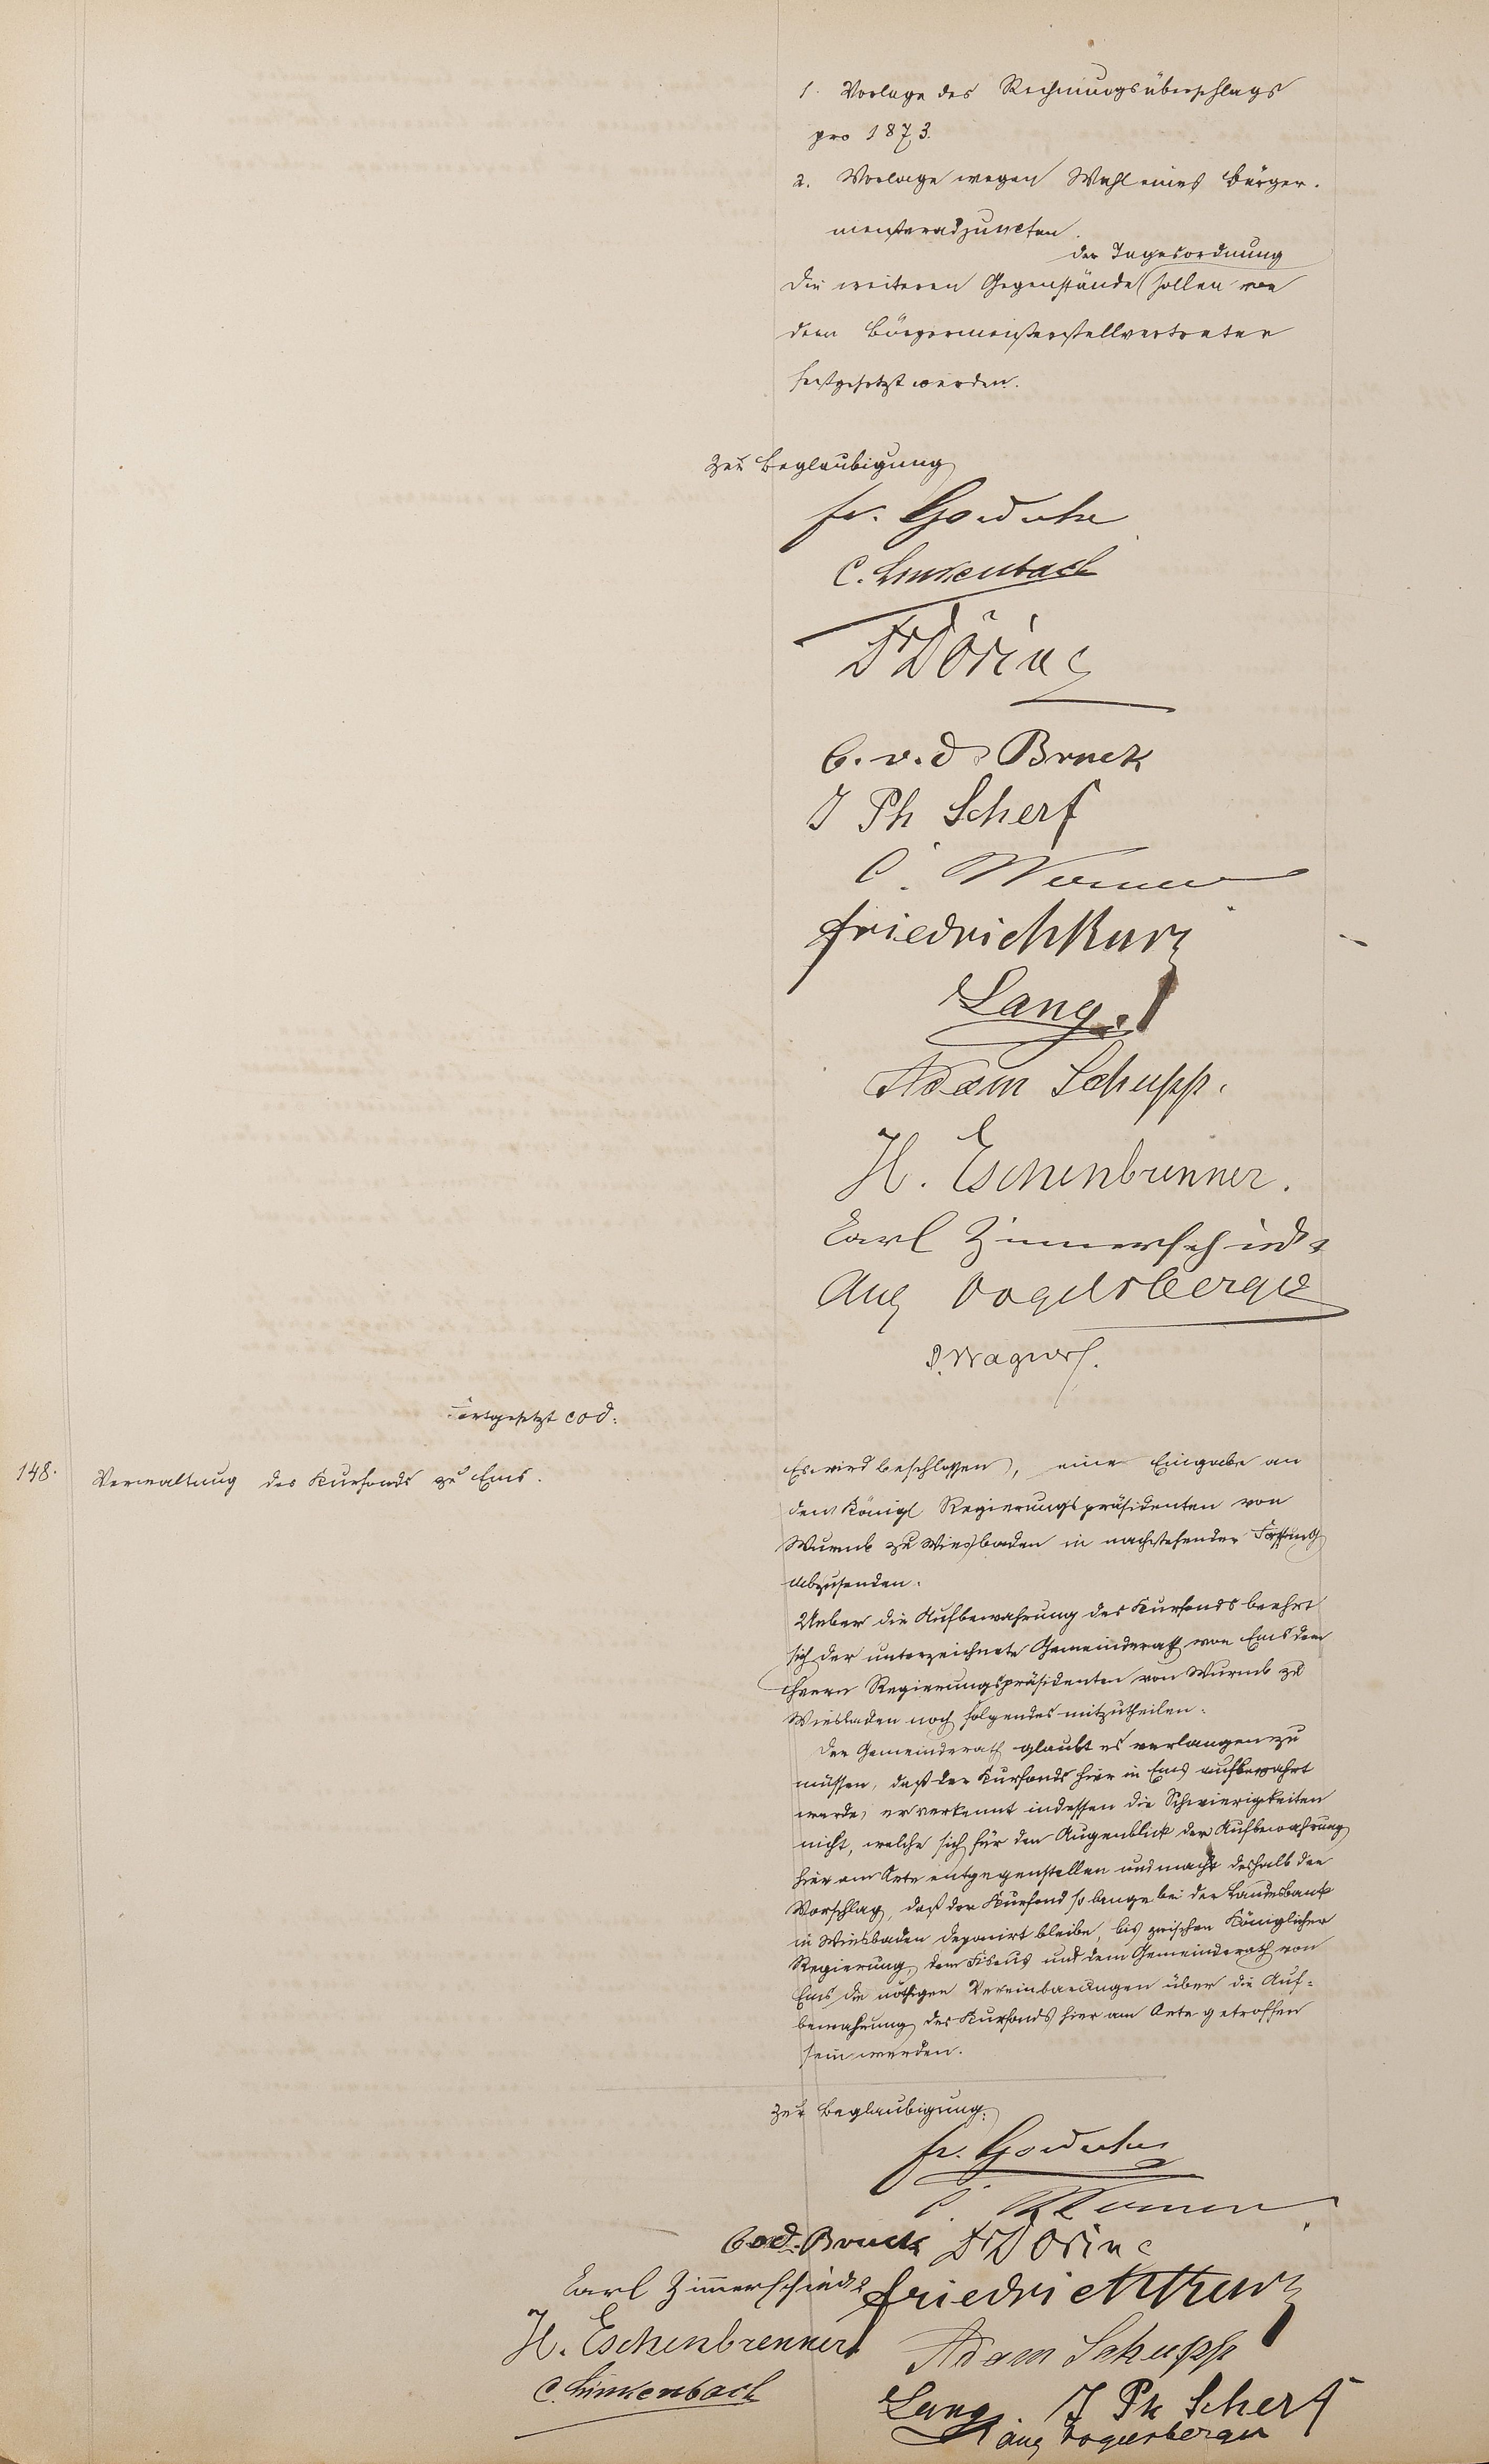 1. Vorlage des Rechnungsüberschlags
pro 1873.
2. Vorlage wegen Wahl eines Bürger-
meisteradjuncten.
der Tagesordnung
Die weiteren Gegenstände sollen von
dem Bürgermeisterstellvertreter
festgesetzt werden.
Zur Beglaubigung
Fr. Goedecke
C. Linkenbach
Dr Döring
C. v. d. Bruck
J Ph Scherf
C. Werner
Friedrich Kurz
Lang.
Adam Schupp.
H. Eschenbrenner.
Carl Zimmerschied
Aug Vogelsberger
P. Wagner.
Fortgesetzt eod.
148. Verwaltung des Kurfonds zu Ems.
Es wird beschlossen, eine Eingabe an
den Königl Regierungspräsidenten von
Wurmb zu Wiesbaden in nachstehender Fassung
abzusenden.
Ueber die Aufbewahrung des Kurfonds beehrt
sich der unterzeichnete Gemeinderath von Ems dem
Herrn Regierungspräsidenten von Wurmb zu
Wiesbaden noch folgendes mitzutheilen.
Der Gemeinderath glaubt es verlangen zu
müssen, daß der Kurfonds hier in Ems aufbewahrt
werde, er verkennt indessen die Schwierigkeiten
nicht, welche sich für den Augenblick der Aufbewahrung
hier am Orte entgegenstellen und macht deshalb den
Vorschlag, daß der Kurfond so lange bei der Landesbank
in Wiesbaden deponirt bleibe, bis zwischen Königlicher
Regierung, dem Fiscus und dem Gemeinderath von
Ems die nöthigen Vereinbarungen über die Auf-
bewahrung des Kurfonds hier am Orte getroffen
sein werden.
Zur Beglaubigung:
Fr. Goedecke
C. Werner
C. v. d. Bruck Dr Döring
Carl Zimmerschied Friedrich Kurz
H. Eschenbrenner Adam Schupp
C. Linkenbach
Lang J Ph Scherf
Aug Vogelsberger